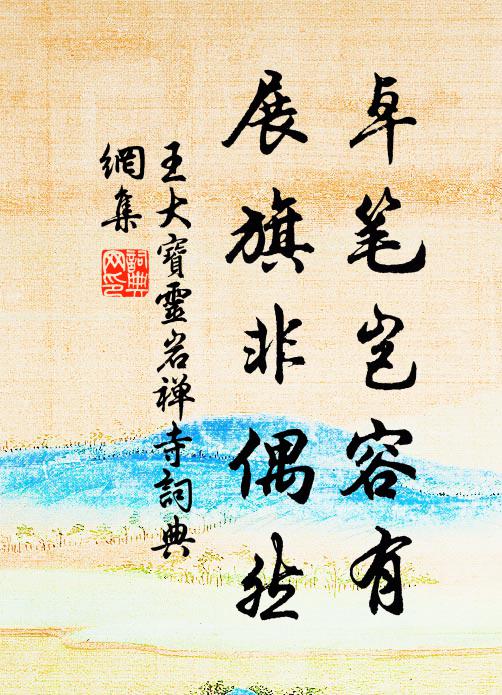 卓笔岂容有
展旗非偶然
王大寶靈岩禅寺詞典
網集
詞典
网印